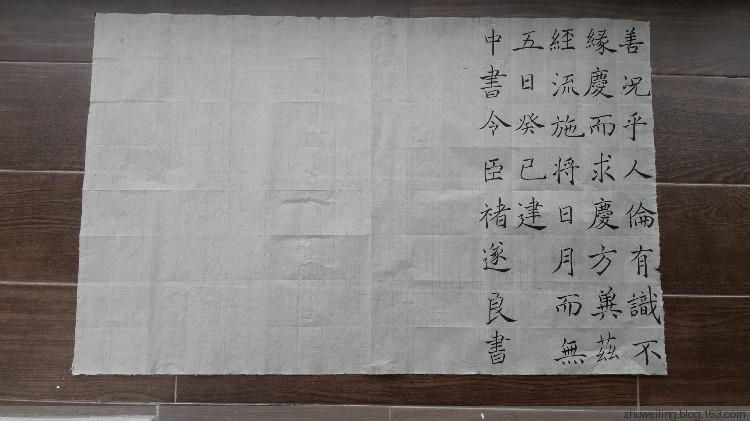 善況乎人倫有識不
緣慶而求慶方冀茲
經流施將日月而無
五日癸巳建
中書令臣褚遂良書
zhuweiling.blog.163.com